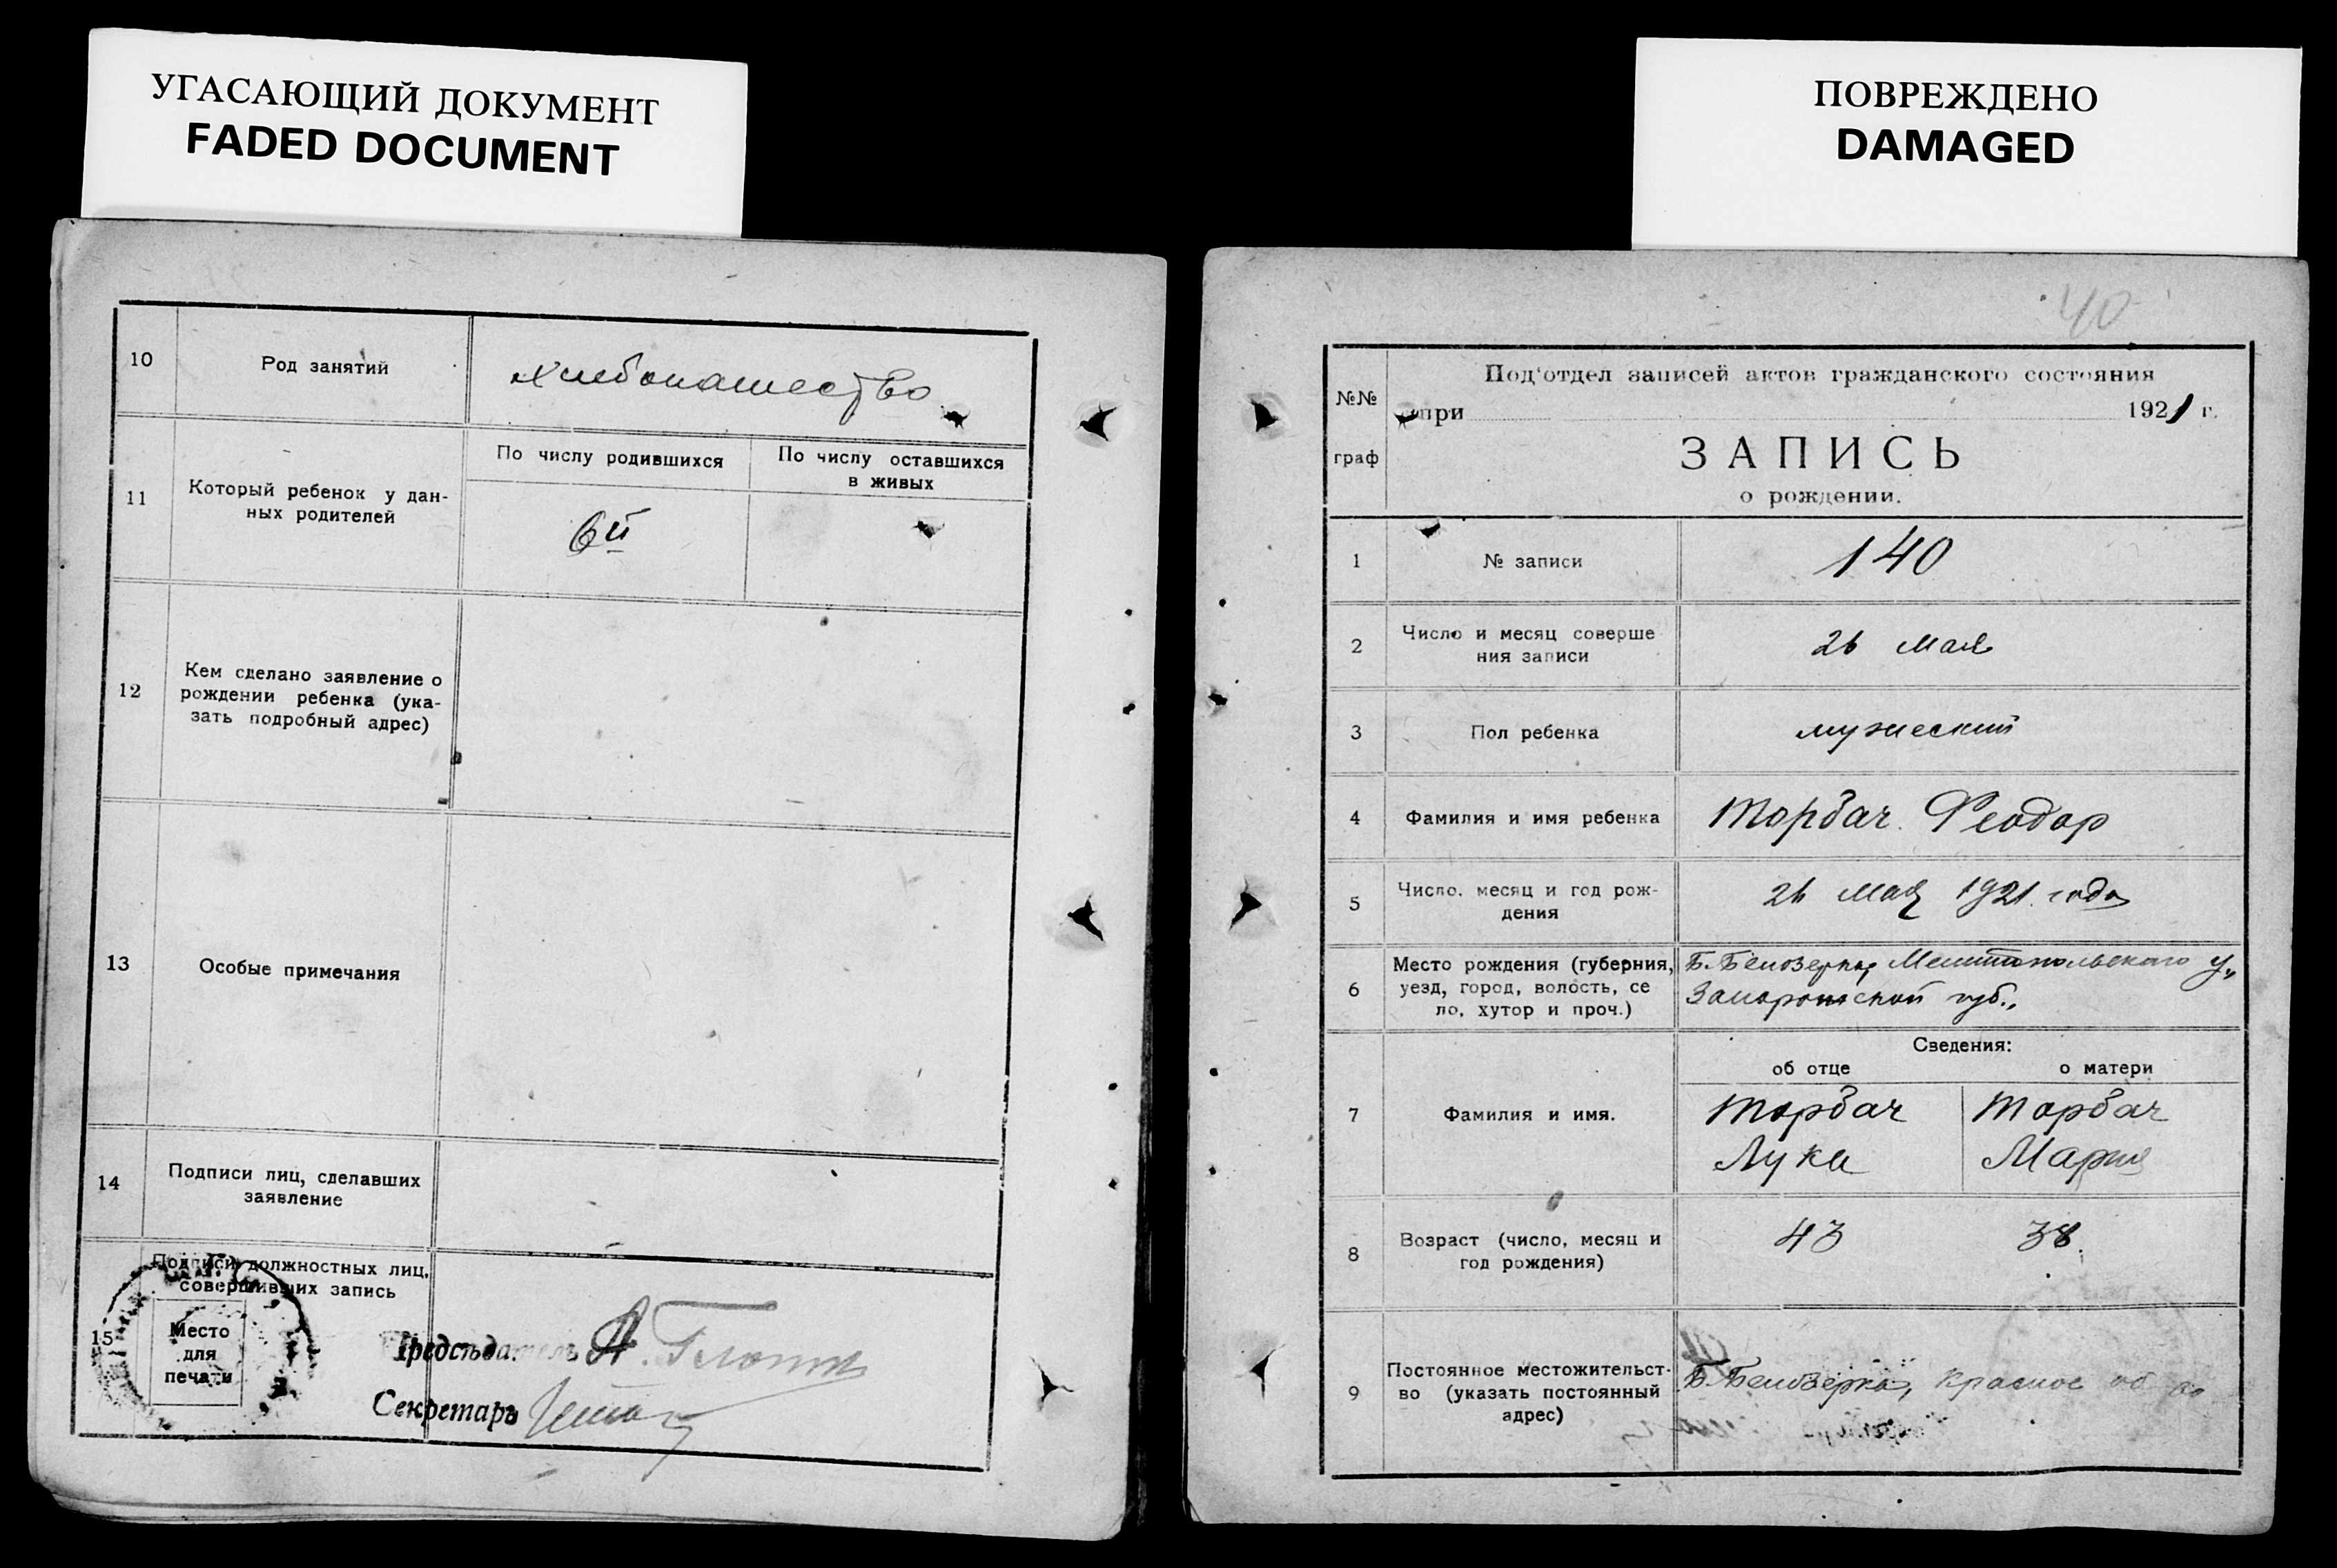 УГАСАЮЩИЙ ДОКУМЕНТ
FADED DOCUMENT
10
Род занятий
хлебопашество
11
Который ребенок у дан-
ных родителей
По числу родившихся
По числу оставшихся
в живых
6й
12
Кем сделано заявление о
рождении ребенка (ука-
зать подробный адрес)
13
Особые примечания
14
Подписи лиц, сделавших
заявление
15
Подписи должностных лиц,
совершивших запись
Место
для
печати
Предсѣдатель А.
Секретарь
ПОВРЕЖДЕНО
DAMAGED
40
№№
граф
Под'отдел записей актов гражданского состояния
при 1921 г.
ЗАПИСЬ
о рождении.
1
№ записи
140
2
Число и месяц соверше
ния записи
26 мая
3
Пол ребенка
мужеский
4
Фамилия и имя ребенка
Торбач. Феодор
5
Число. месяц и год рож-
дения
26 мая 1921. года
6
Место рождения (губерния,
уезд, город, волость, се
ло, хутор и проч.)
Б. Белозерка, Мелитопольского у.,
Запорожской губ.,
Сведения:
об отце
о матери
7
Фамилия и имя.
Торбач
Лука
Торбач
Мария
8
Возраст (число, месяц и
год рождения)
43
38.
9
Постоянное местожительст-
во (указать постоянный
адрес)
Б. Белозерка, Красное